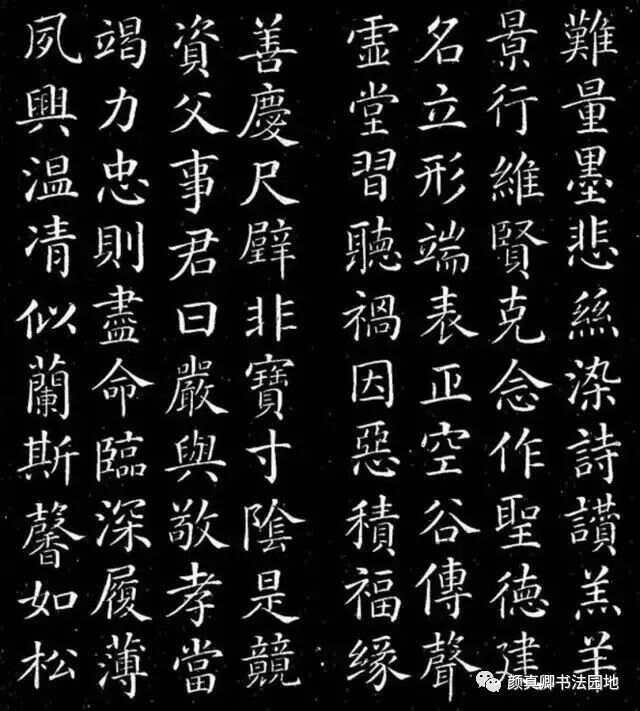 難量墨悲絲染詩讃羔羊
景行維賢克念作聖德建
名立形端表正空谷傳聲
虛堂習聽禍因惡積福緣
善慶尺璧非寶寸陰是競
資父事君曰嚴與敬孝當
竭力忠則盡命臨深履薄
夙興温凊似蘭斯馨如松
颜真卿书法园地